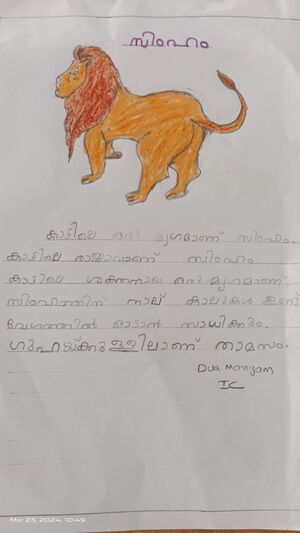 സിംഹം
കാട്ടിലെ ഒരു മൃഗമാണ് സിംഹം.
കാട്ടിലെ രാജാവാണ് സിംഹം.
കാട്ടിലെ ശക്തനായ ഒരു മൃഗമാണ്.
സിംഹത്തിന് നാല് കാലുകൾ ഉണ്ട്
വേഗത്തിൽ ഓടാൻ സാധിക്കും.
ഗുഹയ്ക്കുള്ളിലാണ് താമസം.
Dua Mariyam
IC
Mar 23, 2024, 10:49